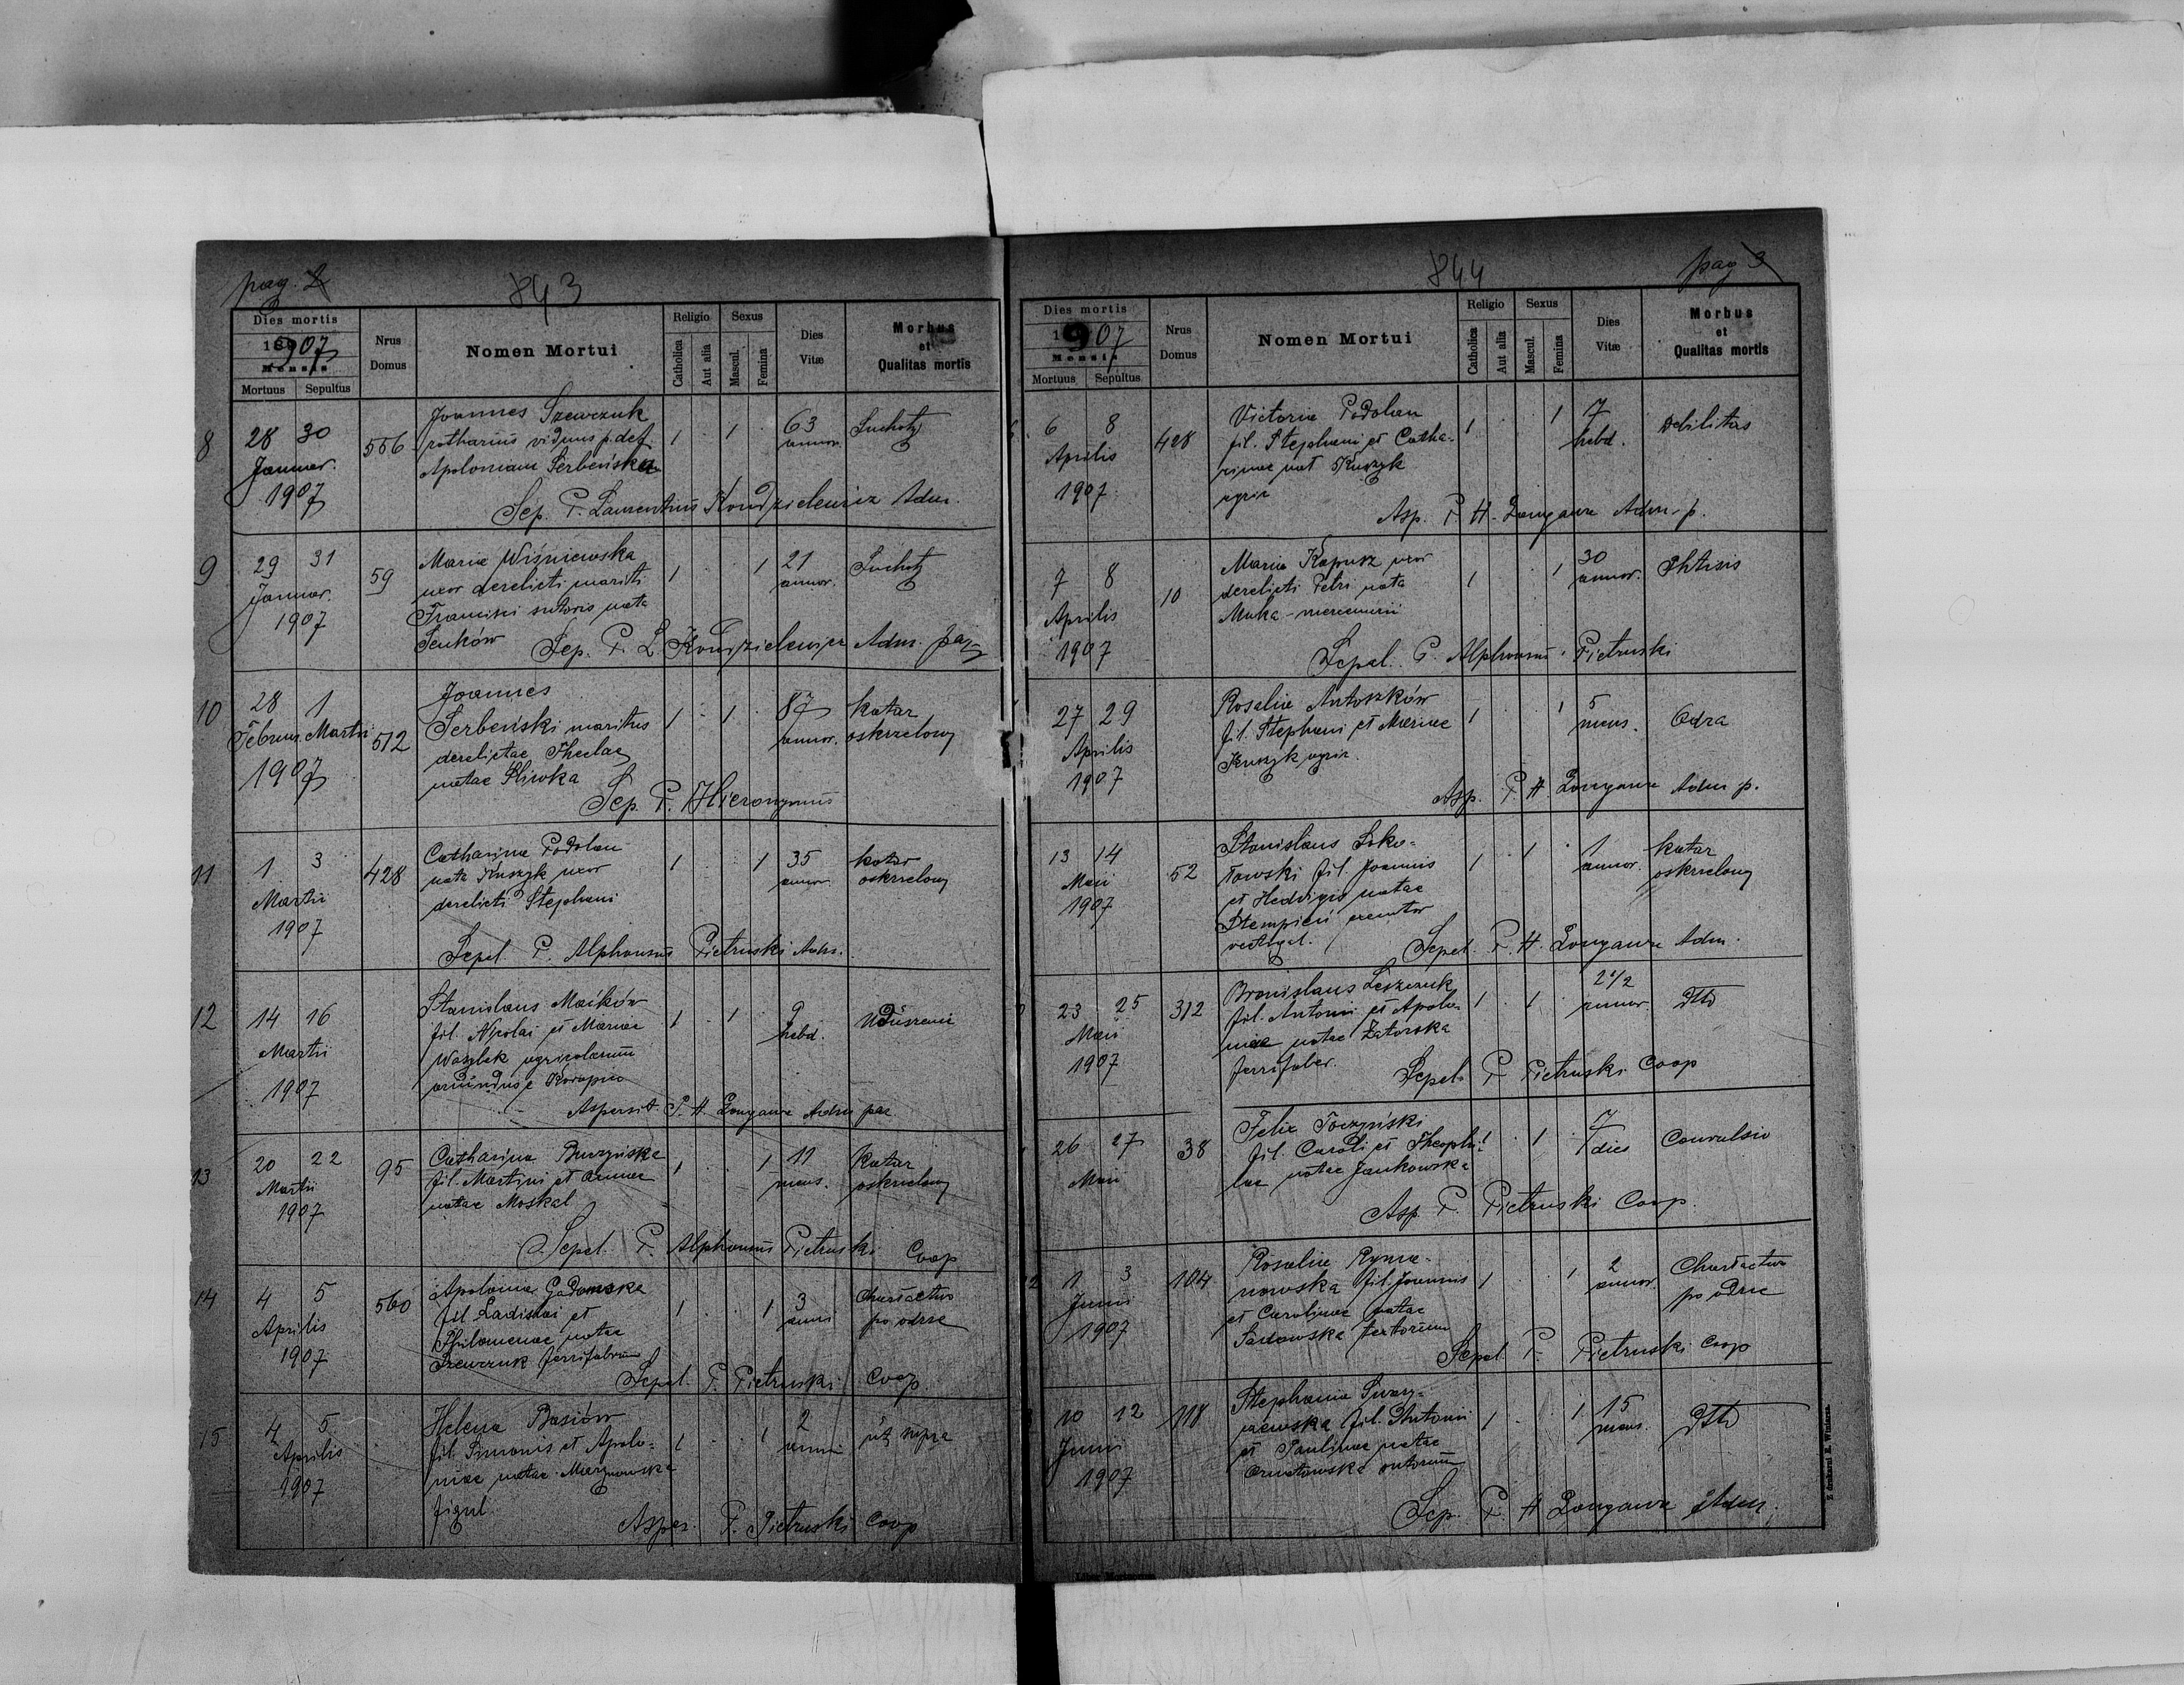 pag. 2
843
Dies mortis
1907
Mensis
Mortuus Sepultus
Nrus Domus
Nomen Mortui
Religio
Catholica
Aut alia
Sexus
Mascul.
Femina
Dies Vitæ
Morbus et Qualitas mortis
8
28 30
Januar.
1907
556
Joannes Szewczuk
rotharius viduus p. def
Apoloniam Serbeńska
1 1
63
annor.
Suchoty
Sep. P. Laurentius Kondzielewicz Adm.
9
29 31
Januar.
1907
59
Maria Wiśniewska
uxor derelicti mariti
Francisci sutoris nata
Senków
1 1
21
annor.
Suchoty
Sep. P. L. Kondzielewicz Adm.
10
28 1
Februar. Martii
1907
512
Joannes
Serbeński maritus
derelictae Theclae
natae Śliwka
1 1
87
annor.
katar
oskrzelowy
Sep. P. Hieronymus
11
1 3
Martii
1907
428
Catharina Podolan
nata Kuszyk uxor
derelicti Stephani
1 1
35
annor.
katar
oskrzelowy
Sepel. P. Alphonsus Pietruski
12
14 16
Martii
1907
Stanislaus Maćków
fil. Nicolai et Mariae
Waszlek agricolarum
oriundus e Koropiec
1 1
9
hebd.
Uduszenie
Aspersit P. H. Longawa Adm par
13
20 22
Martii
1907
95
Catharina Burzyńska
fil. Martini et Annae
natae Moskal
1 1
11
mens.
Katar
oskrzelowy
Sepel. P. Alphonsus Pietruski Coop
14
4 5
Aprilis
1907
560
Apolonia Gadomska
fil Ladislai et
Philomenae natae
Szewczuk ferrifabrum
1 1
3
anni
Charłactwo
po odrze
Sepel. P. Pietruski Coop.
15
4 5
Aprilis
1907
Helena Basiów
fil. Simonis et Apolo-
niae natae Marynowska
figul.
1 1
2
anni
ut supra
Asper. P. Pietruski Coop
844
pag 3
Dies mortis
1907
Mensis
Mortuus Sepultus
Nrus Domus
Nomen Mortui
Religio
Catholica
Aut alia
Sexus
Mascul.
Femina
Dies Vitæ
Morbus et Qualitas mortis
6 8
Aprilis
1907
428
Victoria Podolan
fil. Stephani et Catha-
rinae nat Kuszyk
agric
1 1
7
hebd.
Debilitas
Asp. P. H. Longawa Adm. p.
7 8
Aprilis
1907
10
Maria Kapusz uxor
derelicti Petri nata
Muka - mercenarii
1 1
30
annor.
Phtisis
Sepel. P. Alphonsus Pietruski
27 29
Aprilis
1907
Rosalia Antoszków
fil. Stephani et Mariae
Kuszyk agric.
1 1
5
mens.
Odra
Asp. P. H. Longawa Adm p.
13 14
Maii
1907
52
Stanislaus Soko-
łowski fil. Joannis
et Hedvigis natae
Stempień
vectigal.
1 1
1
annor.
katar
oskrzelowy
Sepel. P. H. Longawa Adm.
23 25
Maii
1907
312
Bronislaus Leszczuk
fil. Antonii et Apolo-
niae natae Zatorska
ferrifaber.
1 1
2 1/2
annor.
Dtto
Sepel. P. Pietruski Coop
26 27
Maii
38
Felix Toczyński
fil. Caroli et Theophi-
lae natae Jankowska
1 1
7
dies
Convulsio
Asp. P. Pietruski Coop.
1 3
Junii
1907
104
Rosalia Ryma-
nowska fil. Joannis
et Carolinae natae
Sadowska textorum
1 1
2
annor.
Charłactwo
po odrze
Sepel. P. Pietruski Coop
10 12
Junii
1907
118
Stephania Swary-
czewska fil. Antonii
et Paulinae natae
Ornatowska sutorum
1 1
15
mens.
Dtto
Sep. P. H Longawa Adm.
Z drukarni E. Winiarza.